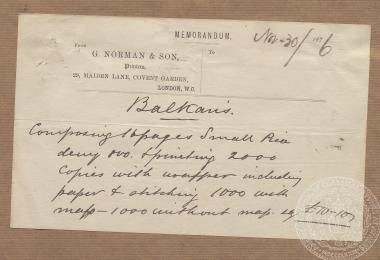 MEMORANDUM.
Nov 30/1876
From
To
G. NORMAN & SON,
Printers,
29, MAIDEN LANE, COVENT GARDEN,
LONDON, W.C.
Balkans.
Composing 16 pages Small Pica
demy 8vo. & printing 2000
copies with wrapper including
paper & stitching 1000 with
maps – 1000 without map. say £10-10/